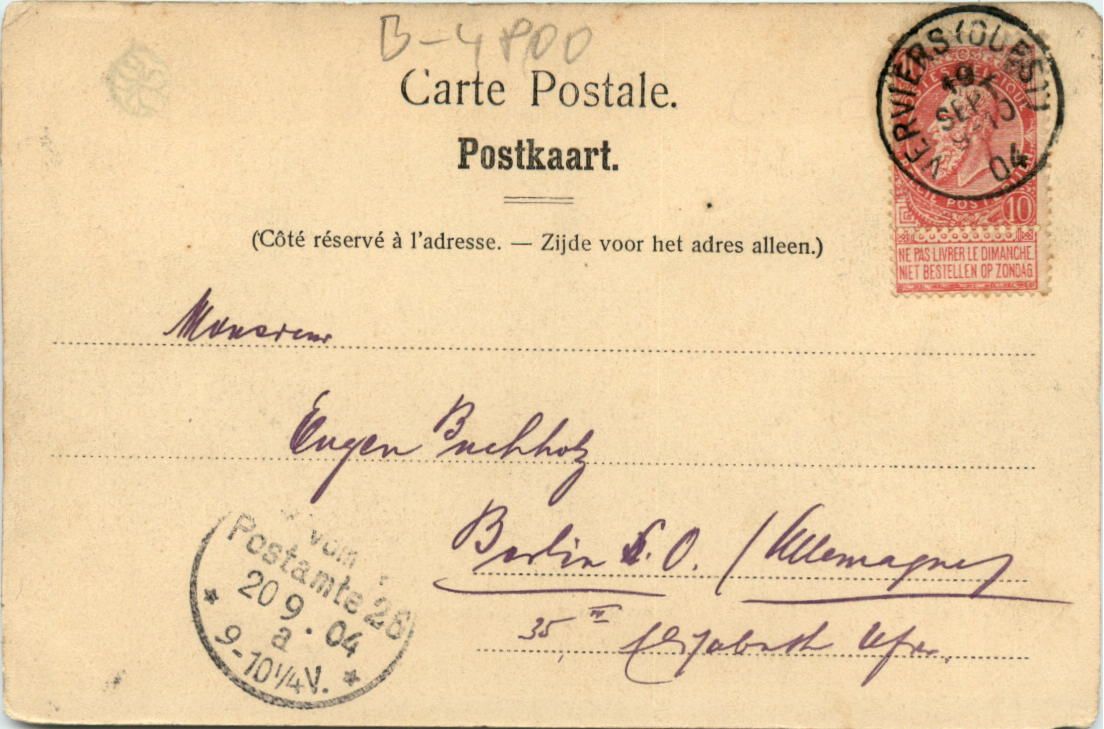 B-4800
Carte Postale.
Postkaart.
(Côté réservé à l'adresse. — Zijde voor het adres alleen.)
VERVIERS (OUEST)
19
SEPT
04
10
NE PAS LIVRER LE DIMANCHE.
NIET BESTELLEN OP ZONDAG.
Monsieur
Eugen Buchholz
Berlin S.O. (Allemagne)
35 IV Elisabeth Ufer
vom
Postamte 26
20 9. 04
a
9-10 1/4 V.